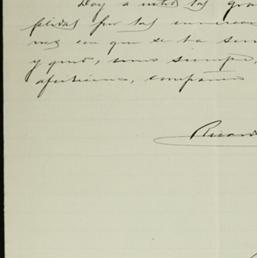 Doy a usted las gra
plidas por las
vez con que se ha ser
y quedo, como siempre,
afectísimo, compañero
Ricard